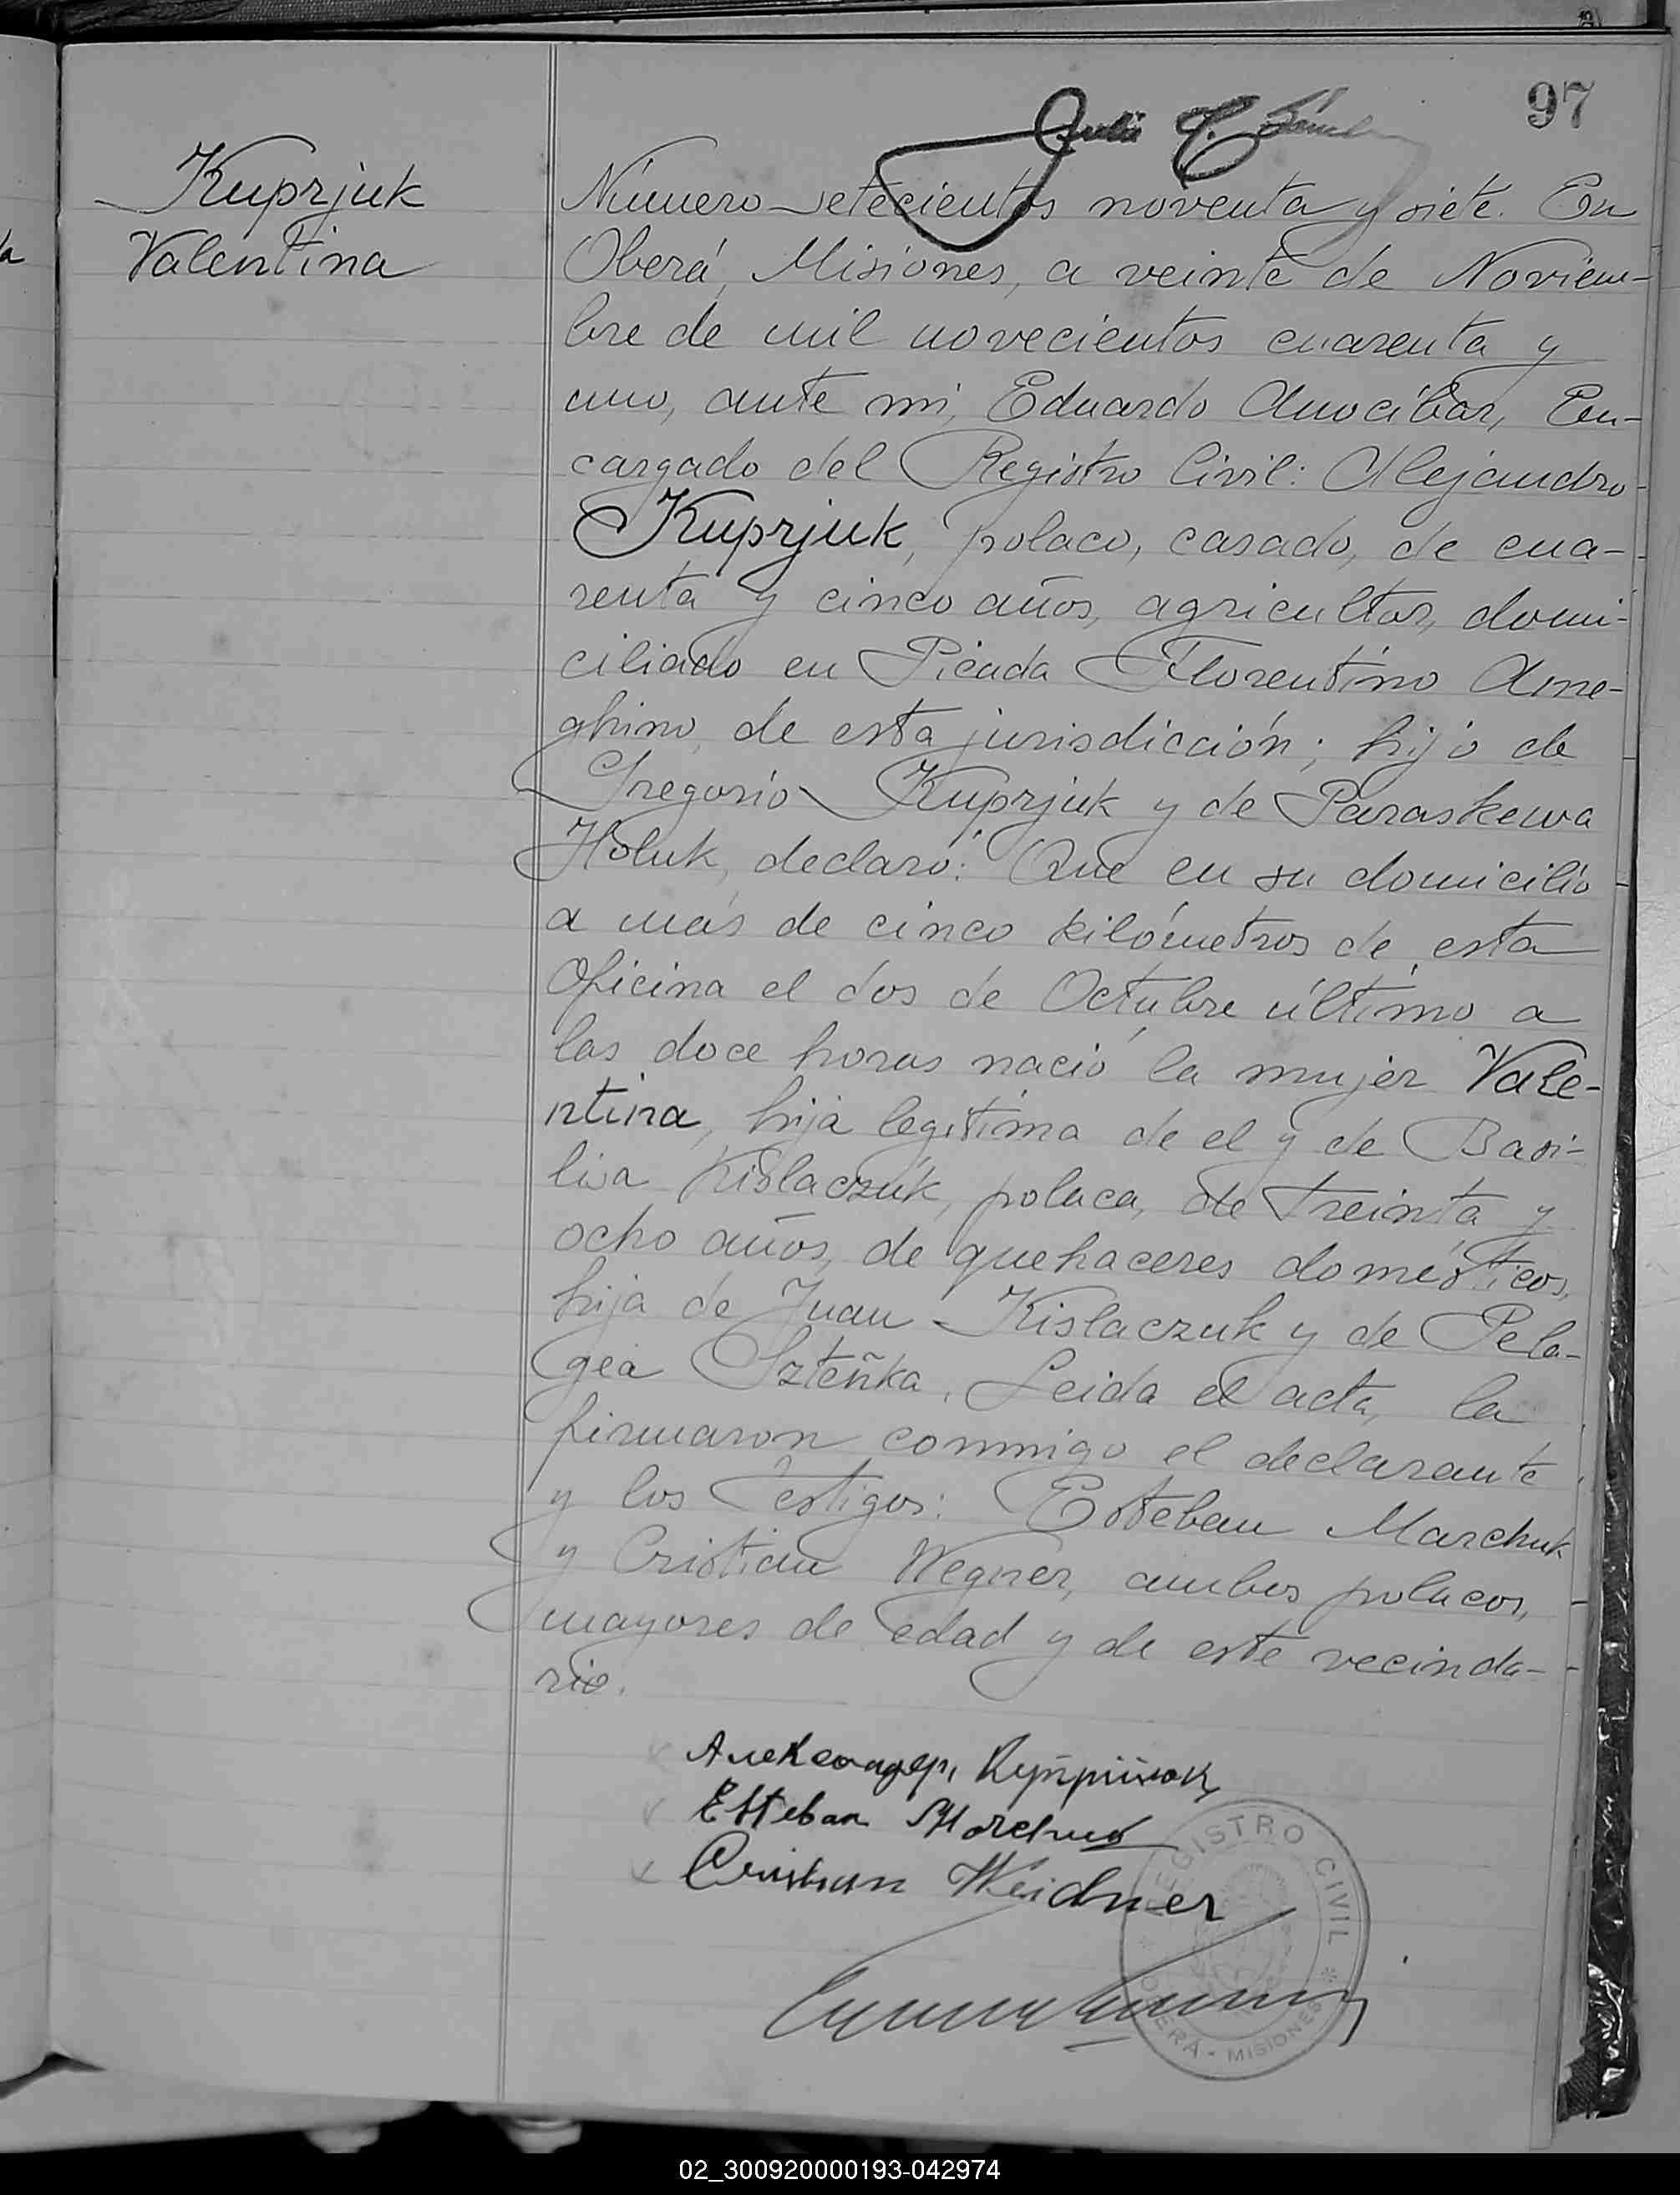 97
Kuprjuk
Valentina
Número setecientos noventa y siete. En
Oberá, Misiones, a veinte de Noviem-
bre de mil novecientos cuarenta y
uno, ante mi, Eduardo Amocibar, En-
cargado del Registro Civil: Alejandro
Kuprjuk, polaco, casado, de cua-
renta y cinco años, agricultor, domi-
ciliado en Picada Florentino Ame-
ghino, de esta jurisdicción; hijo de
Gregorio Kuprjuk y de Paraskewa
Holuk, declaró: Que en su domicilio
a más de cinco kilómetros de esta
Oficina el dos de Octubre último a
las doce horas nació la mujer Vale-
ntina, hija legítima de el y de Basi-
lisa Kislaczuk, polaca, de treinta y
ocho años, de quehaceres domésticos,
hija de Juan Kislaczuk y de Pela-
gea Szteñka. Leida el acta, la
firmaron conmigo el declarante
y los testigos: Esteban Marchuk
y Cristian Wegner, ambos polacos,
mayores de edad y de este vecinda-
rio.
Александер
Esteban Marchuk
Cristian Weidner
REGISTRO CIVIL
OBERÁ - MISIONES
02_300920000193-042974